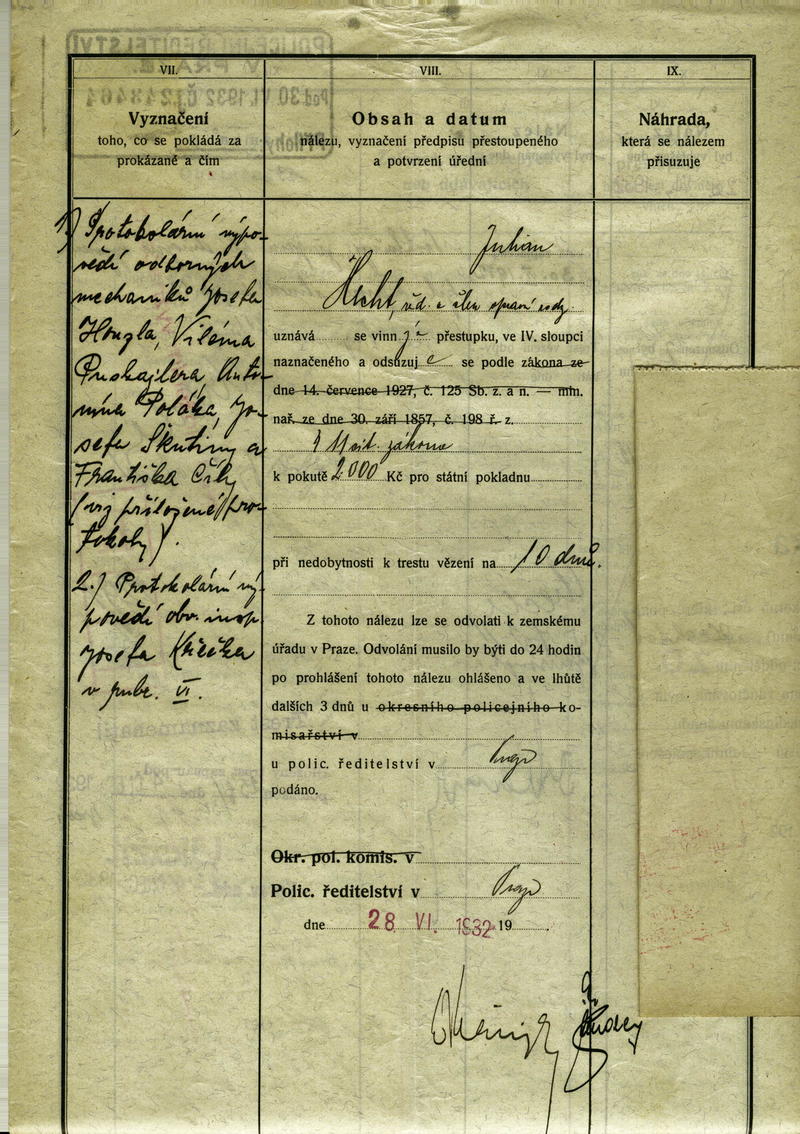 VII.
Vyznačení
toho, co se pokládá za
prokázané a čím
1) Protokolární výpo-
vědi odborných
mechaniků Josefa
Houzla, Viléma
Antonína Poláka, Jo-
sefa Škutiny a
Františka
(viz přiložené pro-
tokoly).
2.) Protokolární vý-
povědi obv. insp.
Josefa
v VI.
VIII.
Obsah a datum
nálezu, vyznačení předpisu přestoupeného
a potvrzení úřední
Julian
Hecht, ř.d. a člen správní rady
uznává se vinným přestupku, ve IV. sloupci
naznačeného a odsuzuje se podle zákona ze
dne 14. července 1927, č. 125 Sb. z. a n. — min.
nař. ze dne 30. září 1857, č. 198 ř. z.
zákona
k pokutě 2000 Kč pro státní pokladnu
při nedobytnosti k trestu vězení na 10 dnů.
Z tohoto nálezu lze se odvolati k zemskému
úřadu v Praze. Odvolání musilo by býti do 24 hodin
po prohlášení tohoto nálezu ohlášeno a ve lhůtě
dalších 3 dnů u okresního policejního ko-
misařství v
u polic. ředitelství v Praze
podáno.
Okr. pol. komis. v
Polic. ředitelství v Praze
dne 28 VI. 1932 19
IX.
Náhrada,
která se nálezem
přisuzuje